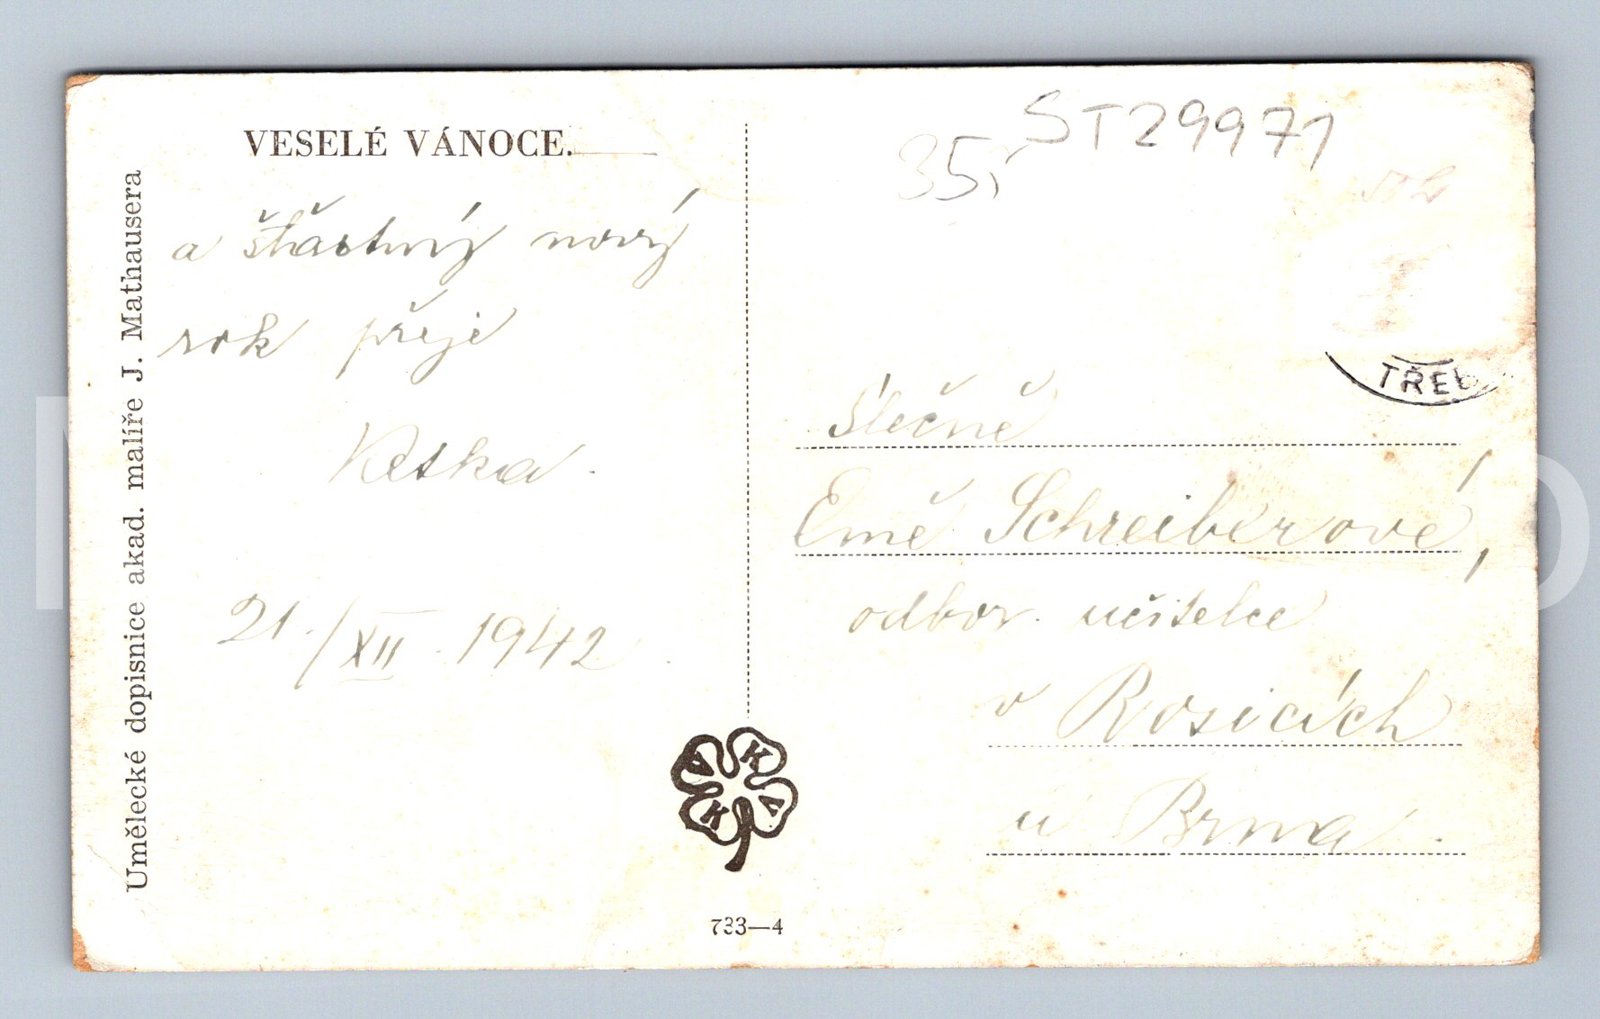 VESELÉ VÁNOCE.
a šťastný nový
rok přeje
21./XII. 1942
Umělecké dopisnice akad. malíře J. Mathausera
K V K V
733—4
ST29971
35,
TŘEB
Slečně
Emě Schreiberové,
odbor. učitelce
v Rosicích
u Brna.